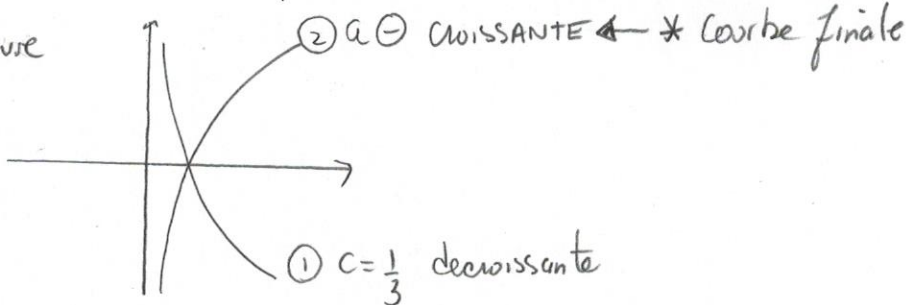 ② a ⊖ CROISSANTE ← * Courbe finale
① C = 1/3 decroissante